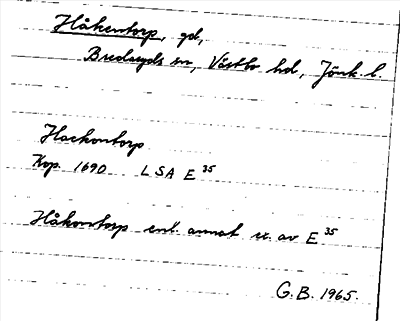 Håkentorp, gd,
Bredaryds sn, Västbo hd, Jönk. l.
Hackontorp
Kop. 1690 LSA E 35
Håkontorp enl. annat ex. av E 35
G.B. 1965.